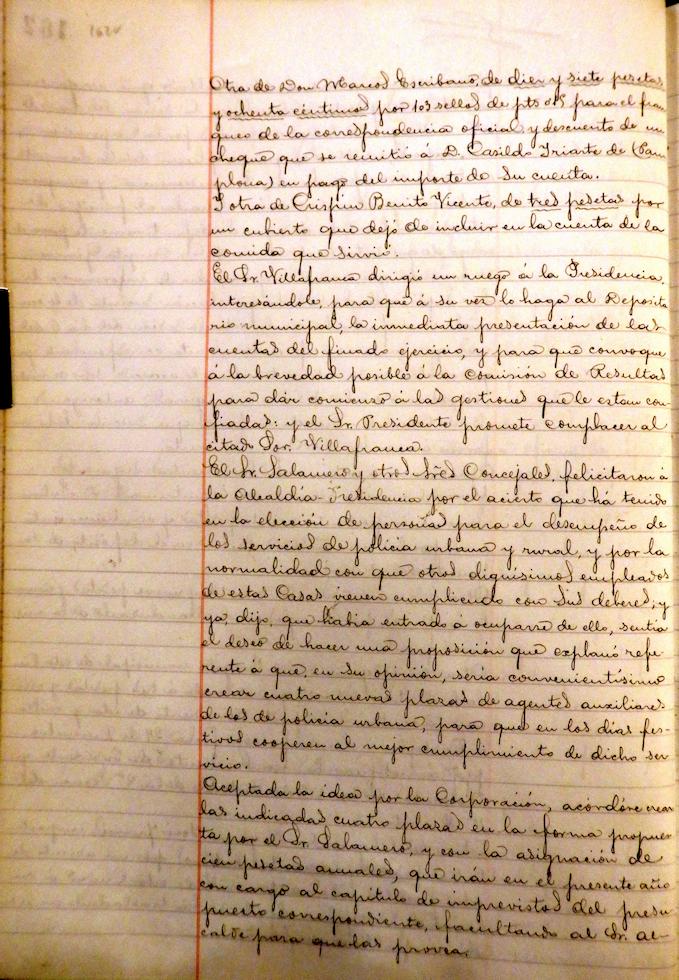 Otra de Don Marcos Escribano, de diez y siete pesetas
y ochenta céntimos por 103 sellos de pts 0'15 para el fran
queo de la correspondencia oficial y descuento de un
cheque que se remitió á D. Casildo Iriarte de (Pam
plona) en pago del importe de su cuenta.
Y otra de Crispin Benito Vicente, de tres pesetas por
un cubierto que dejó de incluir en la cuenta de la
comida que sirvió.
El Sr. Villafranca dirigió un ruego á la Presidencia,
interesándole, para que á su vez lo haga al Deposita
rio municipal, la inmediata presentación de las
cuentas del finado ejercicio, y para que convoque
á la brevedad posible á la Comisión de Resultas
para dár comienzo á las gestiones que le estan con
fiadas: y el Sr. Presidente promete complacer al
citado Sor. Villafranca.
El Sr. Salamero y otros Srés Concejales, felicitaron á
la Alcaldía-Presidencia por el acierto que há tenido
en la elección de personas para el desempeño de
los servicios de policia urbana y rural, y por la
normalidad con que otros dignisimos empleados
de estas Casas vienen cumpliendo con sus deberes; y
ya, dijo, que habia entrado á ocuparse de ello, sentia
el deseo de hacer una proposición que explanó refe
rente á que, en su opinión, sería convenientísimo
crear cuatro nuevas plazas de agentes auxiliares
de los de policia urbana, para que en los dias fes-
tivos cooperen al mejor cumplimiento de dicho ser
vicio.
Aceptada la idea por la Corporación, acórdóse crear
las indicadas cuatro plazas en la forma propues
ta por el Sr. Salamero, y con la asignación de
cien pesetas anuales, que irán en el presente año
con cargo al capitulo de imprevistos del presu
puesto correspondiente, facultando al Sr. al-
calde para que las provea.